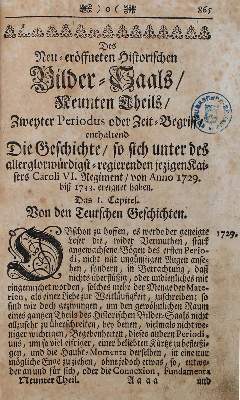 )o( 865
Des
Neu-eröffneten Historischen
Bilder-Saals/
Neunten Theils/
Zweyter Periodus oder Zeit-Begriff
enthaltend
Die Geschichte/ so sich unter des
allerglorwürdigst-regierenden jezigen Kai-
sers Caroli VI. Regiment/ von Anno 1729.
biß 1733. ereignet haben.
Das 1. Capitel.
Von den Teutschen Geschichten.
Obschon zu hoffen, es werde der geneigte 1729.
Leser die, wider Vermuthen, starck
angewachsene Bögen des ersten Perio-
di, nicht mit ungünstigen Augen anse-
hen, sondern, in Betrachtung, daß
nichts überflüssiges, oder undienliches mit
eingemischet worden, solches mehr der Menge der Mate-
rien, als einer Liebe zur Weitläuftigkeit, zuschreiben; so
sind wir doch gezwungen, um den gewöhnlichen Raum
eines gantzen Theils des Historischen Bilder-Saals nicht
allzusehr zu überschreiten, bey denen, vielmals nicht we-
niger wichtigen, Begebenheiten, dieses andern Periodi,
uns, um so viel eifriger, einer beliebten Kürtze zu befleißi-
gen, und die Haupt-Momenta derselben, in eine nur
mögliche Enge zu ziehen, ohne jedoch etwas, so, entwe-
der an und für sich, oder die Connexion, Fundamenta
Neunter Theil. Aaaa und